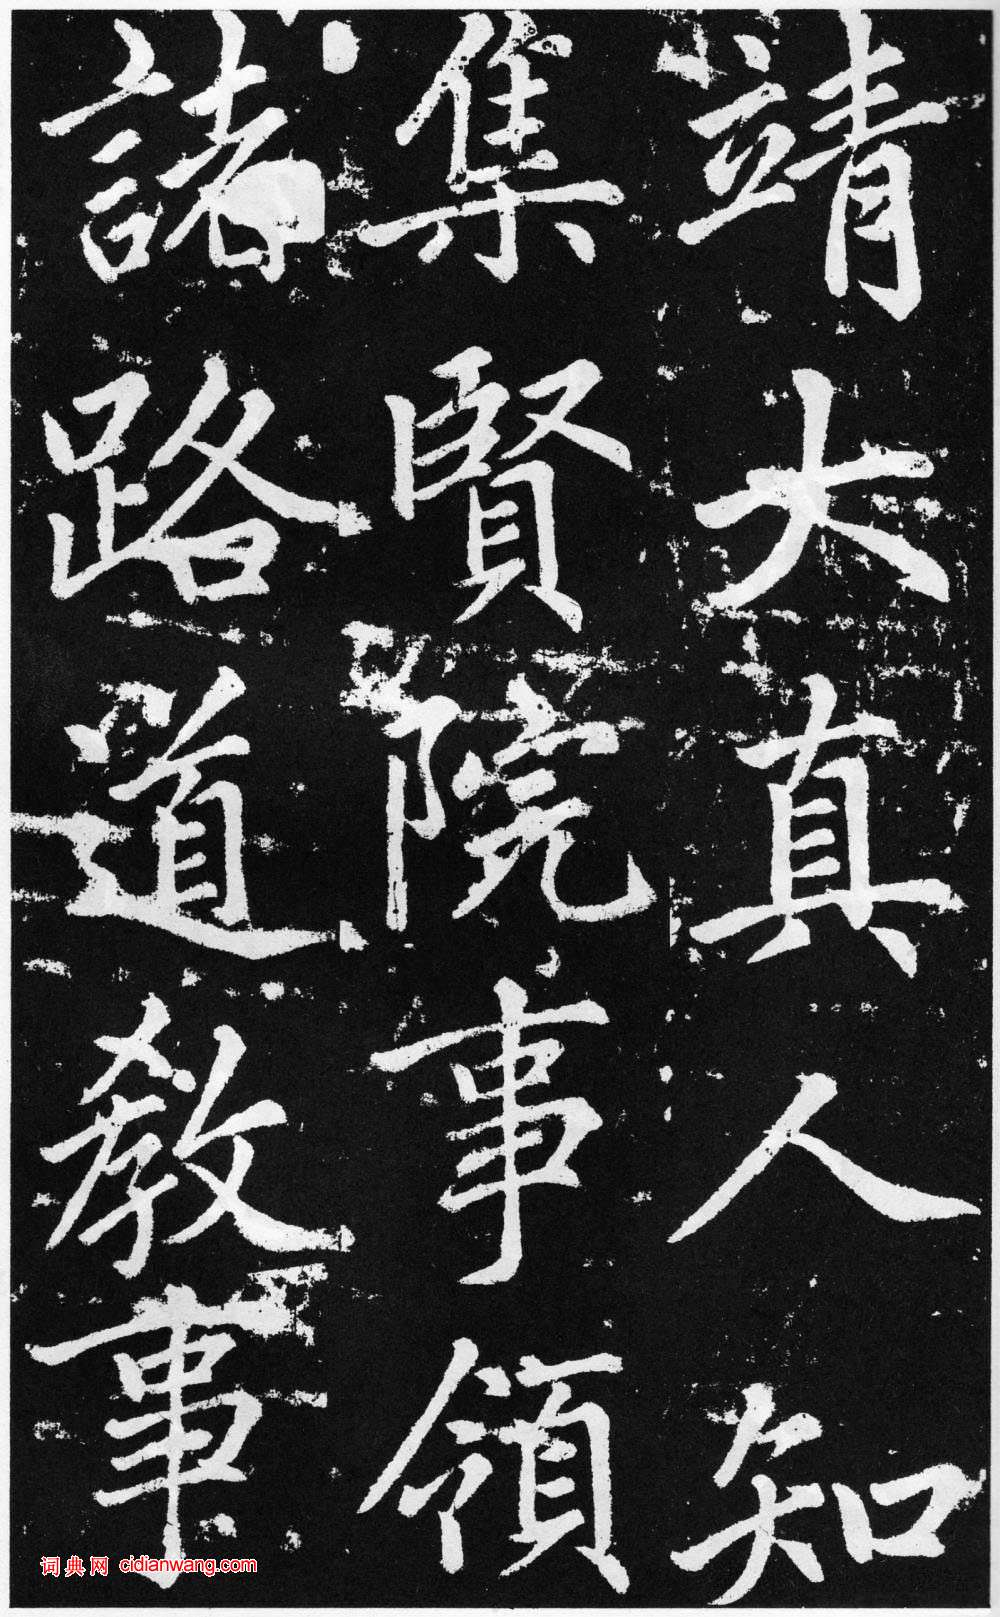 靖大真人知
集賢院事領
諸路道教事
词典网 cidianwang.com